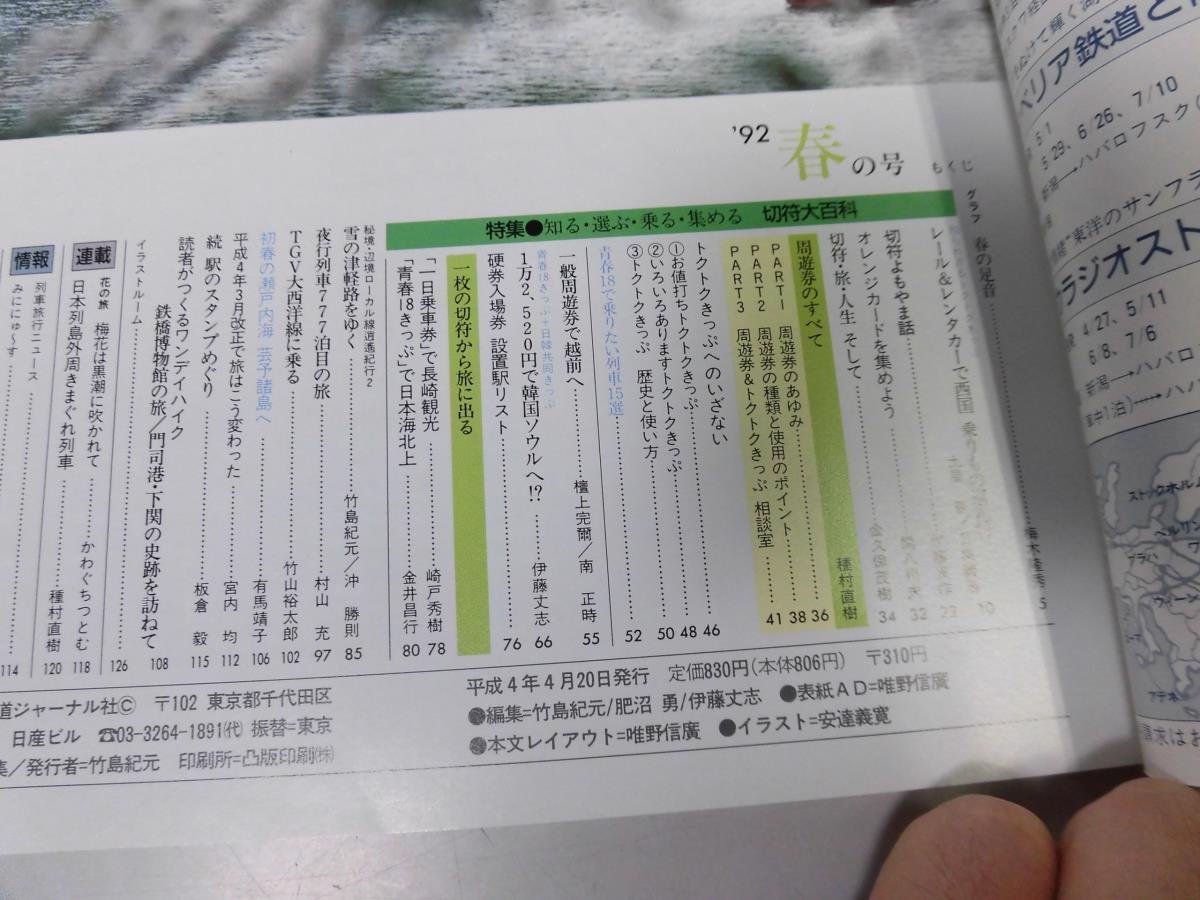 '92 春の号 もくじ
グラフ 春の足音 5
レール&レンタカーで西国 10
23
切符よもやま話 32
オレンジカードを集めよう 金久保茂樹 34
特集●知る・選ぶ・乗る・集める 切符大百科
切符・旅・人生 そして 種村直樹
周遊券のすべて
PART1 周遊券のあゆみ 36
PART2 周遊券の種類と使用のポイント 38
PART3 周遊券&トクトクきっぷ 相談室 41
トクトクきっぷへのいざない 46
①お値打ちトクトクきっぷ 48
②いろいろありますトクトクきっぷ 50
③トクトクきっぷ 歴史と使い方 52
青春18で乗りたい列車15選
一般周遊券で越前へ 檀上完爾/南 正時 55
青春18きっぷ+日韓共同きっぷ
1万2、520円で韓国ソウルへ!? 伊藤丈志 66
硬券入場券 設置駅リスト 76
一枚の切符から旅に出る
「一日乗車券」で長崎観光 崎戸秀樹 78
「青春18きっぷ」で日本海北上 金井昌行 80
秘境・辺境ローカル線逍遙紀行2
雪の津軽路をゆく 竹島紀元/沖 勝則 85
夜行列車777泊目の旅 村山 充 97
TGV大西洋線に乗る 竹山裕太郎 102
初春の瀬戸内海 芸予諸島へ 有馬靖子 106
平成4年3月改正で旅はこう変わった 宮内 均 112
続 駅のスタンプめぐり 板倉 毅 115
読者がつくるワンデイハイク
鉄橋博物館の旅/門司港・下関の史跡を訪ねて 108
イラストルーム 126
連載
花の旅 梅花は黒潮に吹かれて かわぐちつとむ 118
日本列島外周きまぐれ列車 種村直樹 120
情報
列車旅行ニュース
みににゅ〜す 114
平成4年4月20日発行 定価830円(本体806円) 〒310円
●編集=竹島紀元/肥沼 勇/伊藤丈志 ●表紙AD=唯野信廣
●本文レイアウト=唯野信廣 ●イラスト=安達義寛
道ジャーナル社Ⓒ 〒102 東京都千代田区
日産ビル ☎03-3264-1891(代) 振替=東京
集/発行者=竹島紀元 印刷所=凸版印刷㈱
ベリア鉄道と
5/1
5/29、6/26、7/10
新潟→ハバロフスク
東洋のサンフラ
ラジオスト
4/27、5/11
6/8、7/6
新潟→ハバロフ
車中1泊)→ハ
ストックホルム
ベルリン
プラハ
ウィーン
アテネ
請求はお